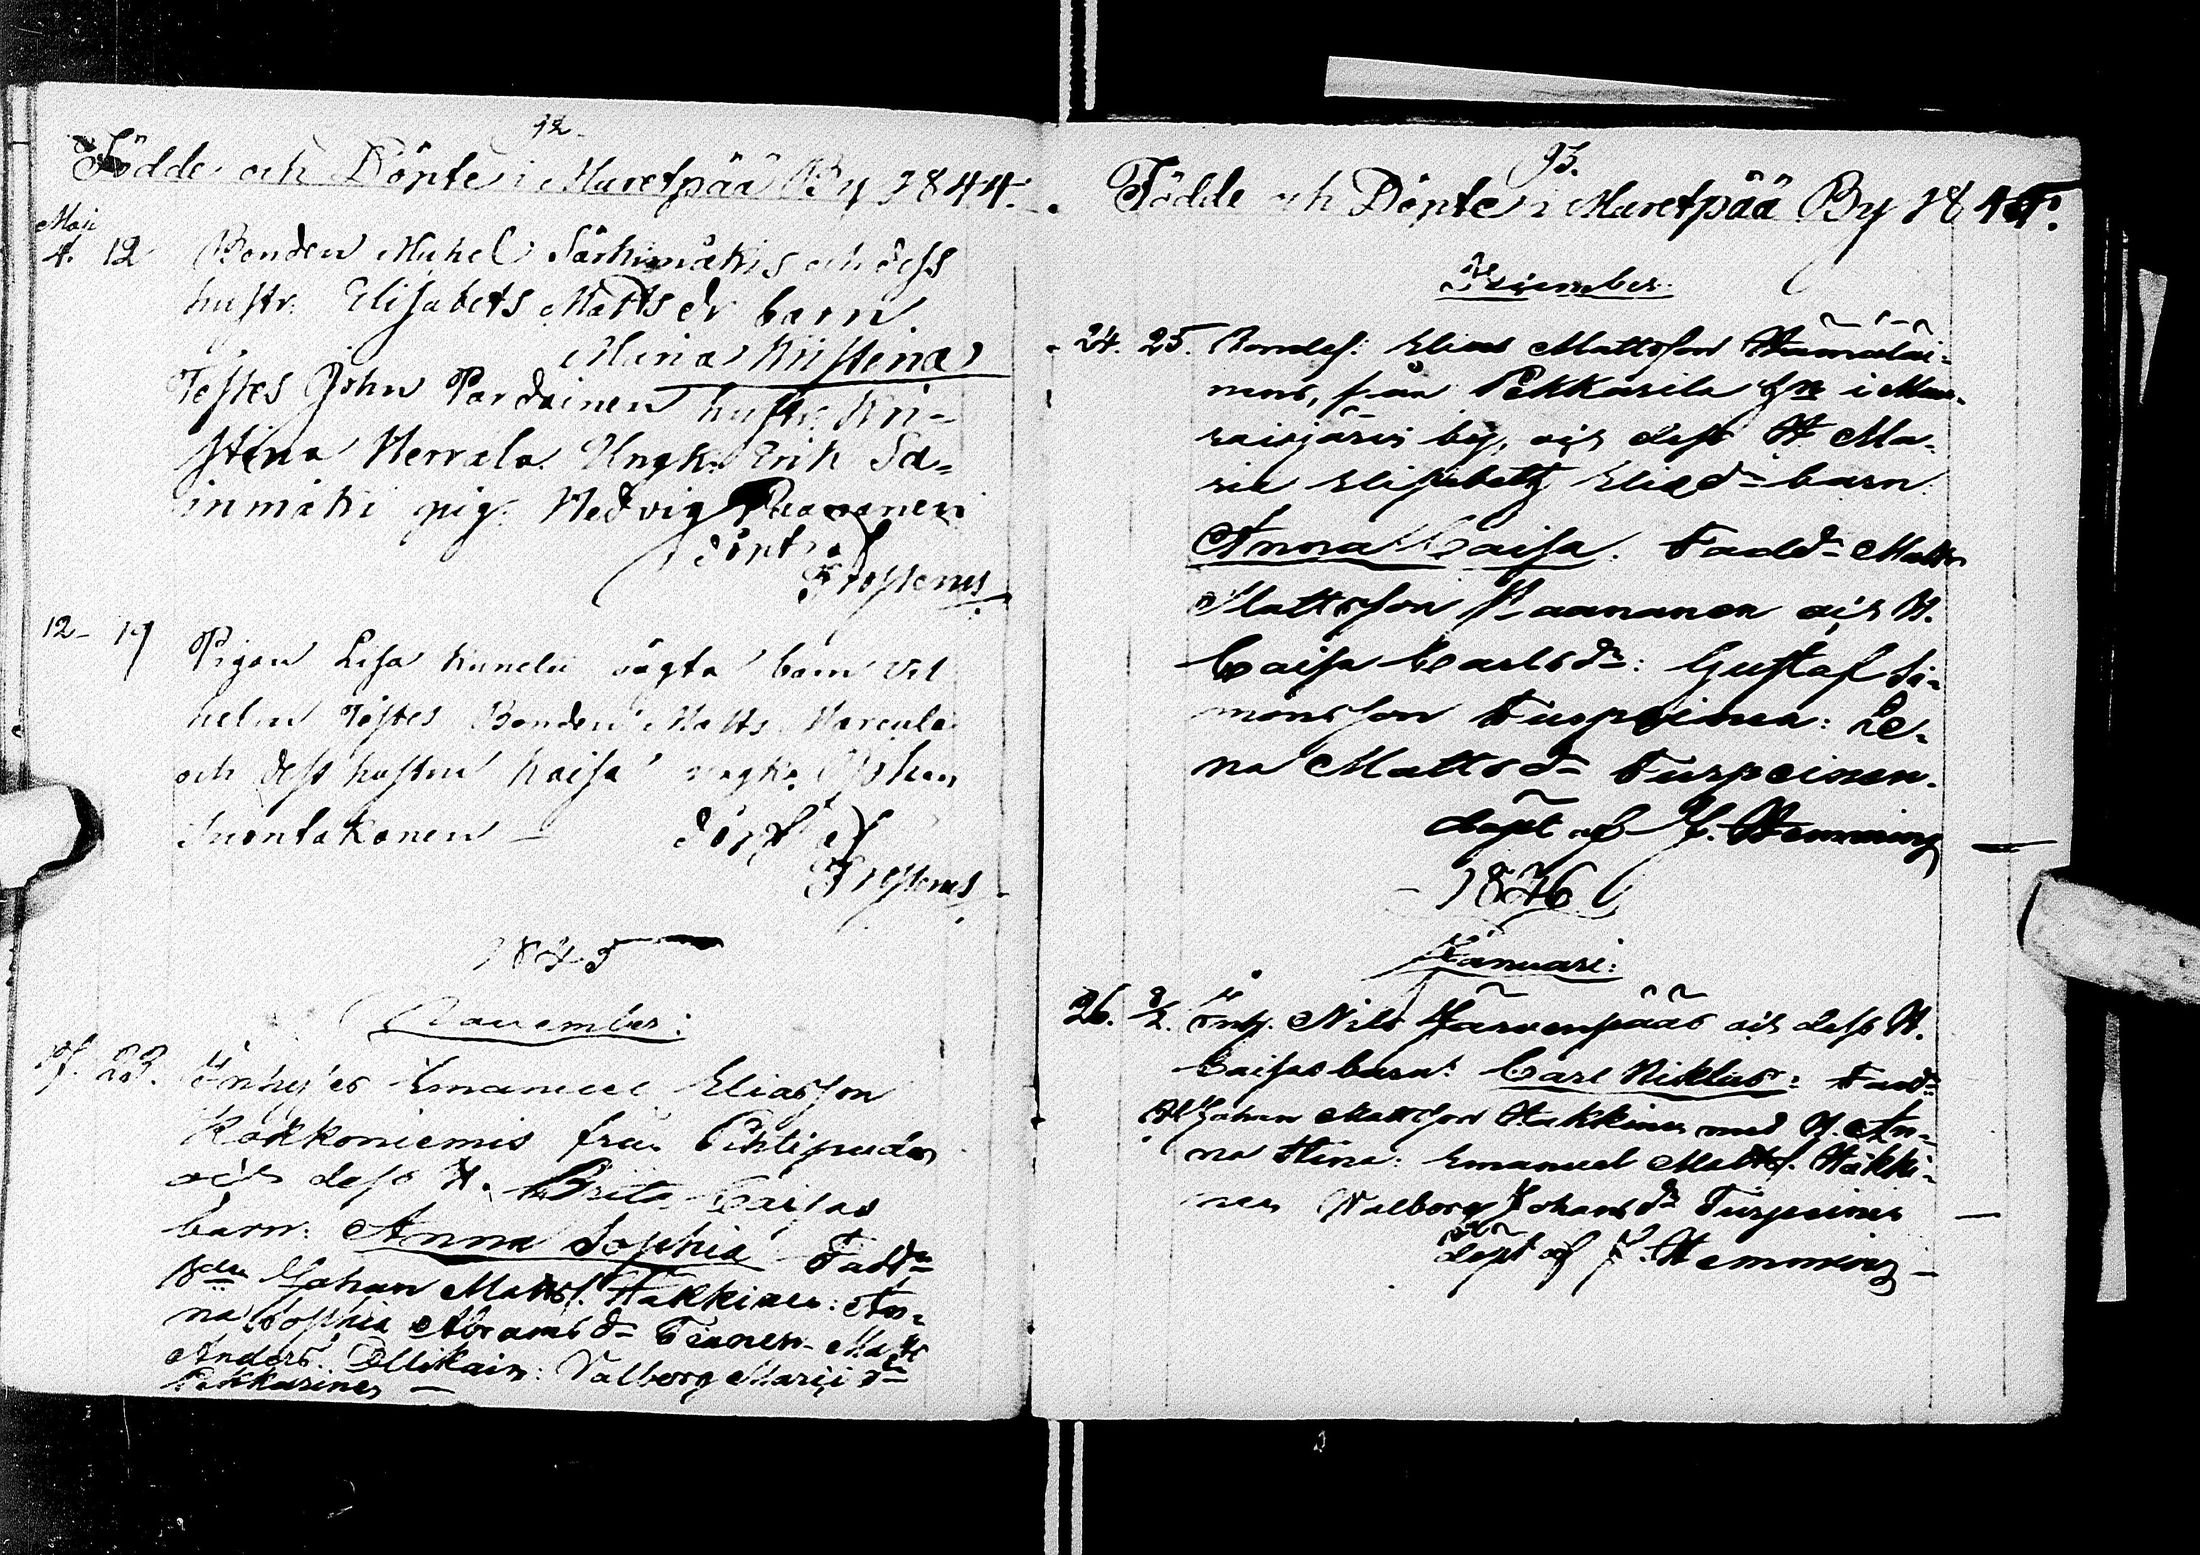 12.
Födde och Döpte i Muretpää By 1844.
Maji
4. 12 Bonden Mickel Särkimäkis och dess
hustr. Elisabets Matts dr barn
Maria Kristina
Testes John Pardainen hustr. Kri-
stina Herrala Ungk. Erik Sa-
inmäki pig. Hedvig Paananen
döpt af
Frosterus
12 - 19 Pigan Lisa oägta barn Vil
helm Testes Bonden Matts Marcula
och dess hustru Kaisa ungk. Johan
Suontakanen - döpt af
Frosterus
1845
November:
23. Inhyses Emanuel Eliasson
Kokkoniemis från Pihtipudas
och dess H. Brita Caisas
barn: Anna Sophia Fadd:
Johan Matts. Hakkinen: An-
na Sophia Abrams dr Matts
Anders. Ollikain: Valborg Marii dr
Pekkarinen -
93.
Födde och Döpte i Muretpää By 1845.
December.
24. 25. Bondes: Elias Mattsson Hämäläi-
nens, från Pekkarila i Mu-
raisjärvi by, och dess H Ma-
ria Elisabeth Eliæd barn
Anna Caisa. Fadd: Matts
Mattsson Paananen och H.
Caisa Carlsdr: Gustaf Si-
monsson Turpeinen: Le-
na Mattsdr Turpeinen.
döpt af J. Hemming
- 1846
Januari:
26. 2/2. Inh. Nils Järvenpääs och dess H.
Caisas barn: Carl Niklas: Fadd:
Johan Mattsson Hakkinen med H. An-
na Stina: Emanuel Matts. Häkki-
nen Valborg Johansdr Turpeinen
döpt af J. Hemming -